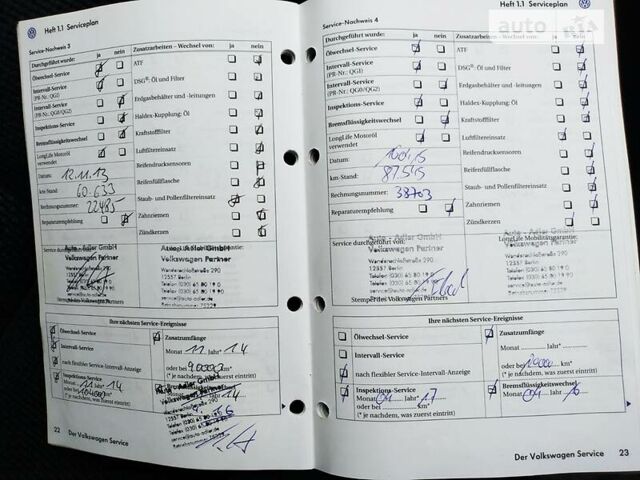 Heft 1.1 Serviceplan
Service-Nachweis 3
Durchgeführt wurde: ja nein
Ölwechsel-Service
Intervall-Service
(PR-Nr.: QG1)
Intervall-Service
(PR-Nr.: QG0/QG2)
Inspektions-Service
Bremsflüssigkeitswechsel
LongLife Motoröl
verwendet
Datum: 12.11.13
km-Stand: 60.633
Rechnungsnummer: 22485
Reparaturempfehlung
Zusatzarbeiten – Wechsel von: ja nein
ATF
DSG®: Öl und Filter
Erdgasbehälter und -leitungen
Haldex-Kupplung: Öl
Kraftstofffilter
Luftfiltereinsatz
Reifendrucksensoren
Reifenfüllflasche
Staub- und Pollenfiltereinsatz
Zahnriemen
Zündkerzen
Service durchgeführt von:
LongLife Mobilitätsgarantie:
Auto - Adler GmbH
Volkswagen Partner
Wendenschloßstraße 290
12557 Berlin
Telefon (030) 65 80 19 0
Telefax (030) 65 80 19 90
service@auto-adler.de
Stempel des Volkswagen Partners
Ihre nächsten Service-Ereignisse
Ölwechsel-Service
Intervall-Service
nach flexibler Service-Intervall-Anzeige
Inspektions-Service
Monat 11 Jahr* 14
Zusatzumfänge
Monat 11 Jahr* 14
oder bei 90000 km*
(* je nachdem, was zuerst eintritt)
22 Der Volkswagen Service
Heft 1.1 Serviceplan
Service-Nachweis 4
Durchgeführt wurde: ja nein
Ölwechsel-Service
Intervall-Service
(PR-Nr.: QG1)
Intervall-Service
(PR-Nr.: QG0/QG2)
Inspektions-Service
Bremsflüssigkeitswechsel
LongLife Motoröl
verwendet
Datum:
km-Stand: 87.545
Rechnungsnummer: 38703
Reparaturempfehlung
Zusatzarbeiten – Wechsel von: ja nein
ATF
DSG®: Öl und Filter
Erdgasbehälter und -leitungen
Haldex-Kupplung: Öl
Kraftstofffilter
Luftfiltereinsatz
Reifendrucksensoren
Reifenfüllflasche
Staub- und Pollenfiltereinsatz
Zahnriemen
Zündkerzen
Service durchgeführt von:
LongLife Mobilitätsgarantie:
Auto - Adler GmbH
Volkswagen Partner
Wendenschloßstraße 290
12557 Berlin
Telefon (030) 65 80 19 0
Telefax (030) 65 80 19 90
service@auto-adler.de
Stempel des Volkswagen Partners
Ihre nächsten Service-Ereignisse
Ölwechsel-Service
Intervall-Service
nach flexibler Service-Intervall-Anzeige
Inspektions-Service
Monat 04 Jahr* 17
oder bei km*
(* je nachdem, was zuerst eintritt)
Zusatzumfänge
Monat Jahr*
oder bei km*
(* je nachdem, was zuerst eintritt)
Bremsflüssigkeitswechsel
Monat 04 Jahr 16
Der Volkswagen Service 23